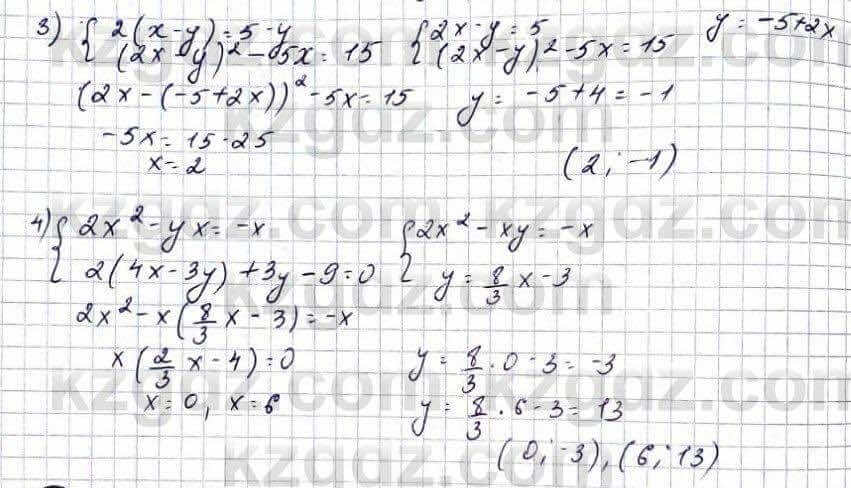 3) { 2(x-y)=5-y   { 2x-y=5   y=-5+2x
(2x-y)²-5x=15   (2x-y)²-5x=15
(2x-(-5+2x))²-5x=15   y=-5+4=-1
-5x=15-25
x=2   (2;-1)
4) { 2x²-yx=-x   { 2x²-xy=-x
2(4x-3y)+3y-9=0   y=8/3x-3
2x²-x(8/3x-3)=-x
x(2/3x-4)=0   y=8/3·0-3=-3
x=0, x=6   y=8/3·6-3=13
(0;-3),(6;13)
kzgdz.com